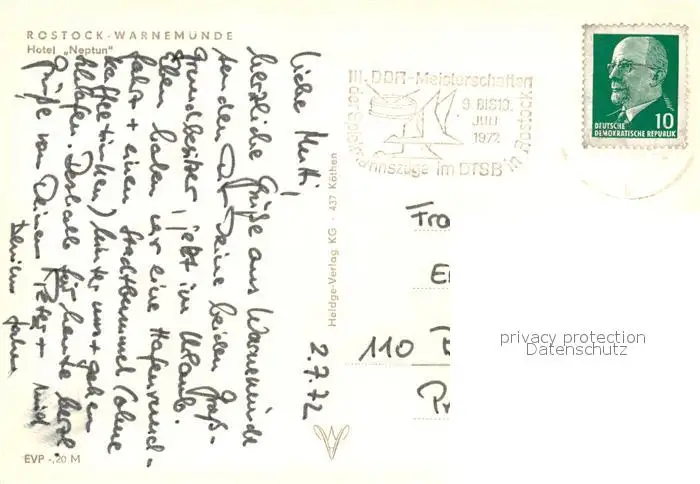 ROSTOCK-WARNEMÜNDE
Hotel „Neptun"
Liebe Mutti,
herzliche Grüße aus Warnemünde
senden Dir Deine beiden Groß-
grundbesitzer, jetzt im Urlaub.
Eben haben wir eine Hafenrund-
fahrt + einen Stadtbummel (ohne
Kaffeetrinken) hinter uns + gehen
schlafen. Deshalb für heute herzl.
Grüße von Deinem Peter +
2.7.72
EVP -,20 M
Heldge-Verlag KG · 437 Köthen
III. DDR-Meisterschaften
9. BIS 13.
JULI
1972
im DTSB in Rostock
DEUTSCHE
DEMOKRATISCHE REPUBLIK
10
Fra
110
privacy protection
Datenschutz